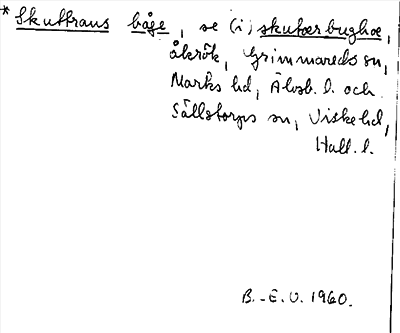 * Skuttrans båge, se (i) skutærbughæ,
åkrök, Grimmareds sn,
Marks hd, Älvsb. l. och
Sällstorps sn, Viske hd,
Hall. l.
B.-E.U. 1960.